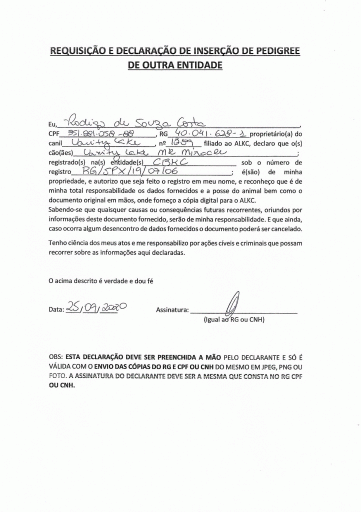 REQUISIÇÃO E DECLARAÇÃO DE INSERÇÃO DE PEDIGREE
DE OUTRA ENTIDADE
Eu, Rodrigo de Souza Costa
CPF 351.981.058-88, RG 40.041.628-1 proprietário(a) do
canil Vanity Lake, nº 1259 filiado ao ALKC, declaro que o(s)
cão(ães) Vanity Lake MR Miracle;
registrado(s) na(s) entidade(s) CBKC sob o número de
registro RG/SPX/19/07106; é(são) de minha
propriedade, e autorizo que seja feito o registro em meu nome, e reconheço que é de
minha total responsabilidade os dados fornecidos e a posse do animal bem como o
documento original em mãos, onde forneço a cópia digital para o ALKC.
Sabendo-se que quaisquer causas ou consequências futuras recorrentes, oriundos por
informações deste documento fornecido, serão de minha responsabilidade. E que ainda,
caso ocorra algum desencontro de dados fornecidos o documento poderá ser cancelado.
Tenho ciência dos meus atos e me responsabilizo por ações cíveis e criminais que possam
recorrer sobre as informações aqui declaradas.
O acima descrito é verdade e dou fé
Data: 25/09/2020 Assinatura:
(Igual ao RG ou CNH)
OBS: ESTA DECLARAÇÃO DEVE SER PREENCHIDA A MÃO PELO DECLARANTE E SÓ É
VÁLIDA COM O ENVIO DAS CÓPIAS DO RG E CPF OU CNH DO MESMO EM JPEG, PNG OU
FOTO. A ASSINATURA DO DECLARANTE DEVE SER A MESMA QUE CONSTA NO RG CPF
OU CNH.